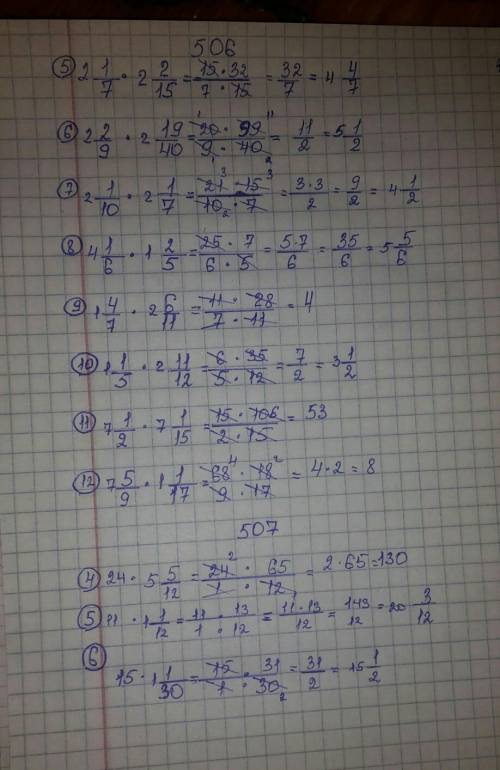 506
⑤ 2 1/7 · 2 2/15 = 15·32/7·15 = 32/7 = 4 4/7
⑥ 2 2/9 · 2 19/40 = 20·99/9·40 = 11/2 = 5 1/2
⑦ 2 1/10 · 2 1/7 = 21·15/10·7 = 3·3/2 = 9/2 = 4 1/2
⑧ 4 1/6 · 1 2/5 = 25·7/6·5 = 5·7/6 = 35/6 = 5 5/6
⑨ 1 4/7 · 2 6/11 = 11·28/7·11 = 4
⑩ 1 1/5 · 2 11/12 = 6·35/5·12 = 7/2 = 3 1/2
⑪ 7 1/2 · 7 1/15 = 15·106/2·15 = 53
⑫ 7 5/9 · 1 1/17 = 68·18/9·17 = 4·2 = 8
507
④ 24 · 5 5/12 = 24·65/1·12 = 2·65=130
⑤ 11 · 1 1/12 = 11/1 · 13/12 = 11·13/12 = 143/12 = 20 3/12
⑥ 15 · 1 1/30 = 15/1 · 31/30 = 31/2 = 15 1/2